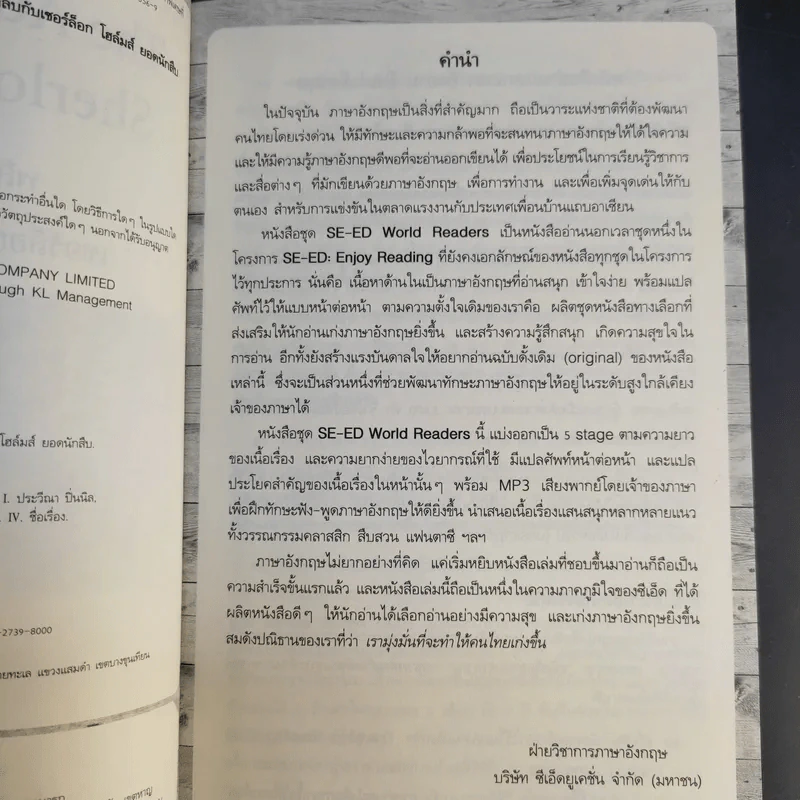 ลับกับเชอร์ล็อก โฮล์มส์ ยอดนักสืบ
อกระทำอื่นใด โดยวิธีการใดๆ ในรูปแบบใด
วัตถุประสงค์ใดๆ นอกจากได้รับอนุญาต
OMPANY LIMITED
ough KL Management
โฮล์มส์ ยอดนักสืบ.
I. ประวีณา ปิ่นนิล.
IV. ชื่อเรื่อง.
-2739-8000
ายทะเล แขวงแสมดำ เขตบางขุนเทียน
คำนำ
ในปัจจุบัน ภาษาอังกฤษเป็นสิ่งที่สำคัญมาก ถือเป็นวาระแห่งชาติที่ต้องพัฒนา
คนไทยโดยเร่งด่วน ให้มีทักษะและความกล้าพอที่จะสนทนาภาษาอังกฤษให้ได้ใจความ
และให้มีความรู้ภาษาอังกฤษดีพอที่จะอ่านออกเขียนได้ เพื่อประโยชน์ในการเรียนรู้วิชาการ
และสื่อต่างๆ ที่มักเขียนด้วยภาษาอังกฤษ เพื่อการทำงาน และเพื่อเพิ่มจุดเด่นให้กับ
ตนเอง สำหรับการแข่งขันในตลาดแรงงานกับประเทศเพื่อนบ้านแถบอาเซียน
หนังสือชุด SE-ED World Readers เป็นหนังสืออ่านนอกเวลาชุดหนึ่งใน
โครงการ SE-ED: Enjoy Reading ที่ยังคงเอกลักษณ์ของหนังสือทุกชุดในโครงการ
ไว้ทุกประการ นั่นคือ เนื้อหาด้านในเป็นภาษาอังกฤษที่อ่านสนุก เข้าใจง่าย พร้อมแปล
ศัพท์ไว้ให้แบบหน้าต่อหน้า ตามความตั้งใจเดิมของเราคือ ผลิตชุดหนังสือทางเลือกที่
ส่งเสริมให้นักอ่านเก่งภาษาอังกฤษยิ่งขึ้น และสร้างความรู้สึกสนุก เกิดความสุขใจใน
การอ่าน อีกทั้งยังสร้างแรงบันดาลใจให้อยากอ่านฉบับดั้งเดิม (original) ของหนังสือ
เหล่านี้ ซึ่งจะเป็นส่วนหนึ่งที่ช่วยพัฒนาทักษะภาษาอังกฤษให้อยู่ในระดับสูงใกล้เคียง
เจ้าของภาษาได้
หนังสือชุด SE-ED World Readers นี้ แบ่งออกเป็น 5 stage ตามความยาว
ของเนื้อเรื่อง และความยากง่ายของไวยากรณ์ที่ใช้ มีแปลศัพท์หน้าต่อหน้า และแปล
ประโยคสำคัญของเนื้อเรื่องในหน้านั้นๆ พร้อม MP3 เสียงพากย์โดยเจ้าของภาษา
เพื่อฝึกทักษะฟัง-พูดภาษาอังกฤษให้ดียิ่งขึ้น นำเสนอเนื้อเรื่องแสนสนุกหลากหลายแนว
ทั้งวรรณกรรมคลาสสิก สืบสวน แฟนตาซี ฯลฯ
ภาษาอังกฤษไม่ยากอย่างที่คิด แค่เริ่มหยิบหนังสือเล่มที่ชอบขึ้นมาอ่านก็ถือเป็น
ความสำเร็จขั้นแรกแล้ว และหนังสือเล่มนี้ถือเป็นหนึ่งในความภาคภูมิใจของซีเอ็ด ที่ได้
ผลิตหนังสือดีๆ ให้นักอ่านได้เลือกอ่านอย่างมีความสุข และเก่งภาษาอังกฤษยิ่งขึ้น
สมดังปณิธานของเราที่ว่า เรามุ่งมั่นที่จะทำให้คนไทยเก่งขึ้น
ฝ่ายวิชาการภาษาอังกฤษ
บริษัท ซีเอ็ดยูเคชั่น จำกัด (มหาชน)